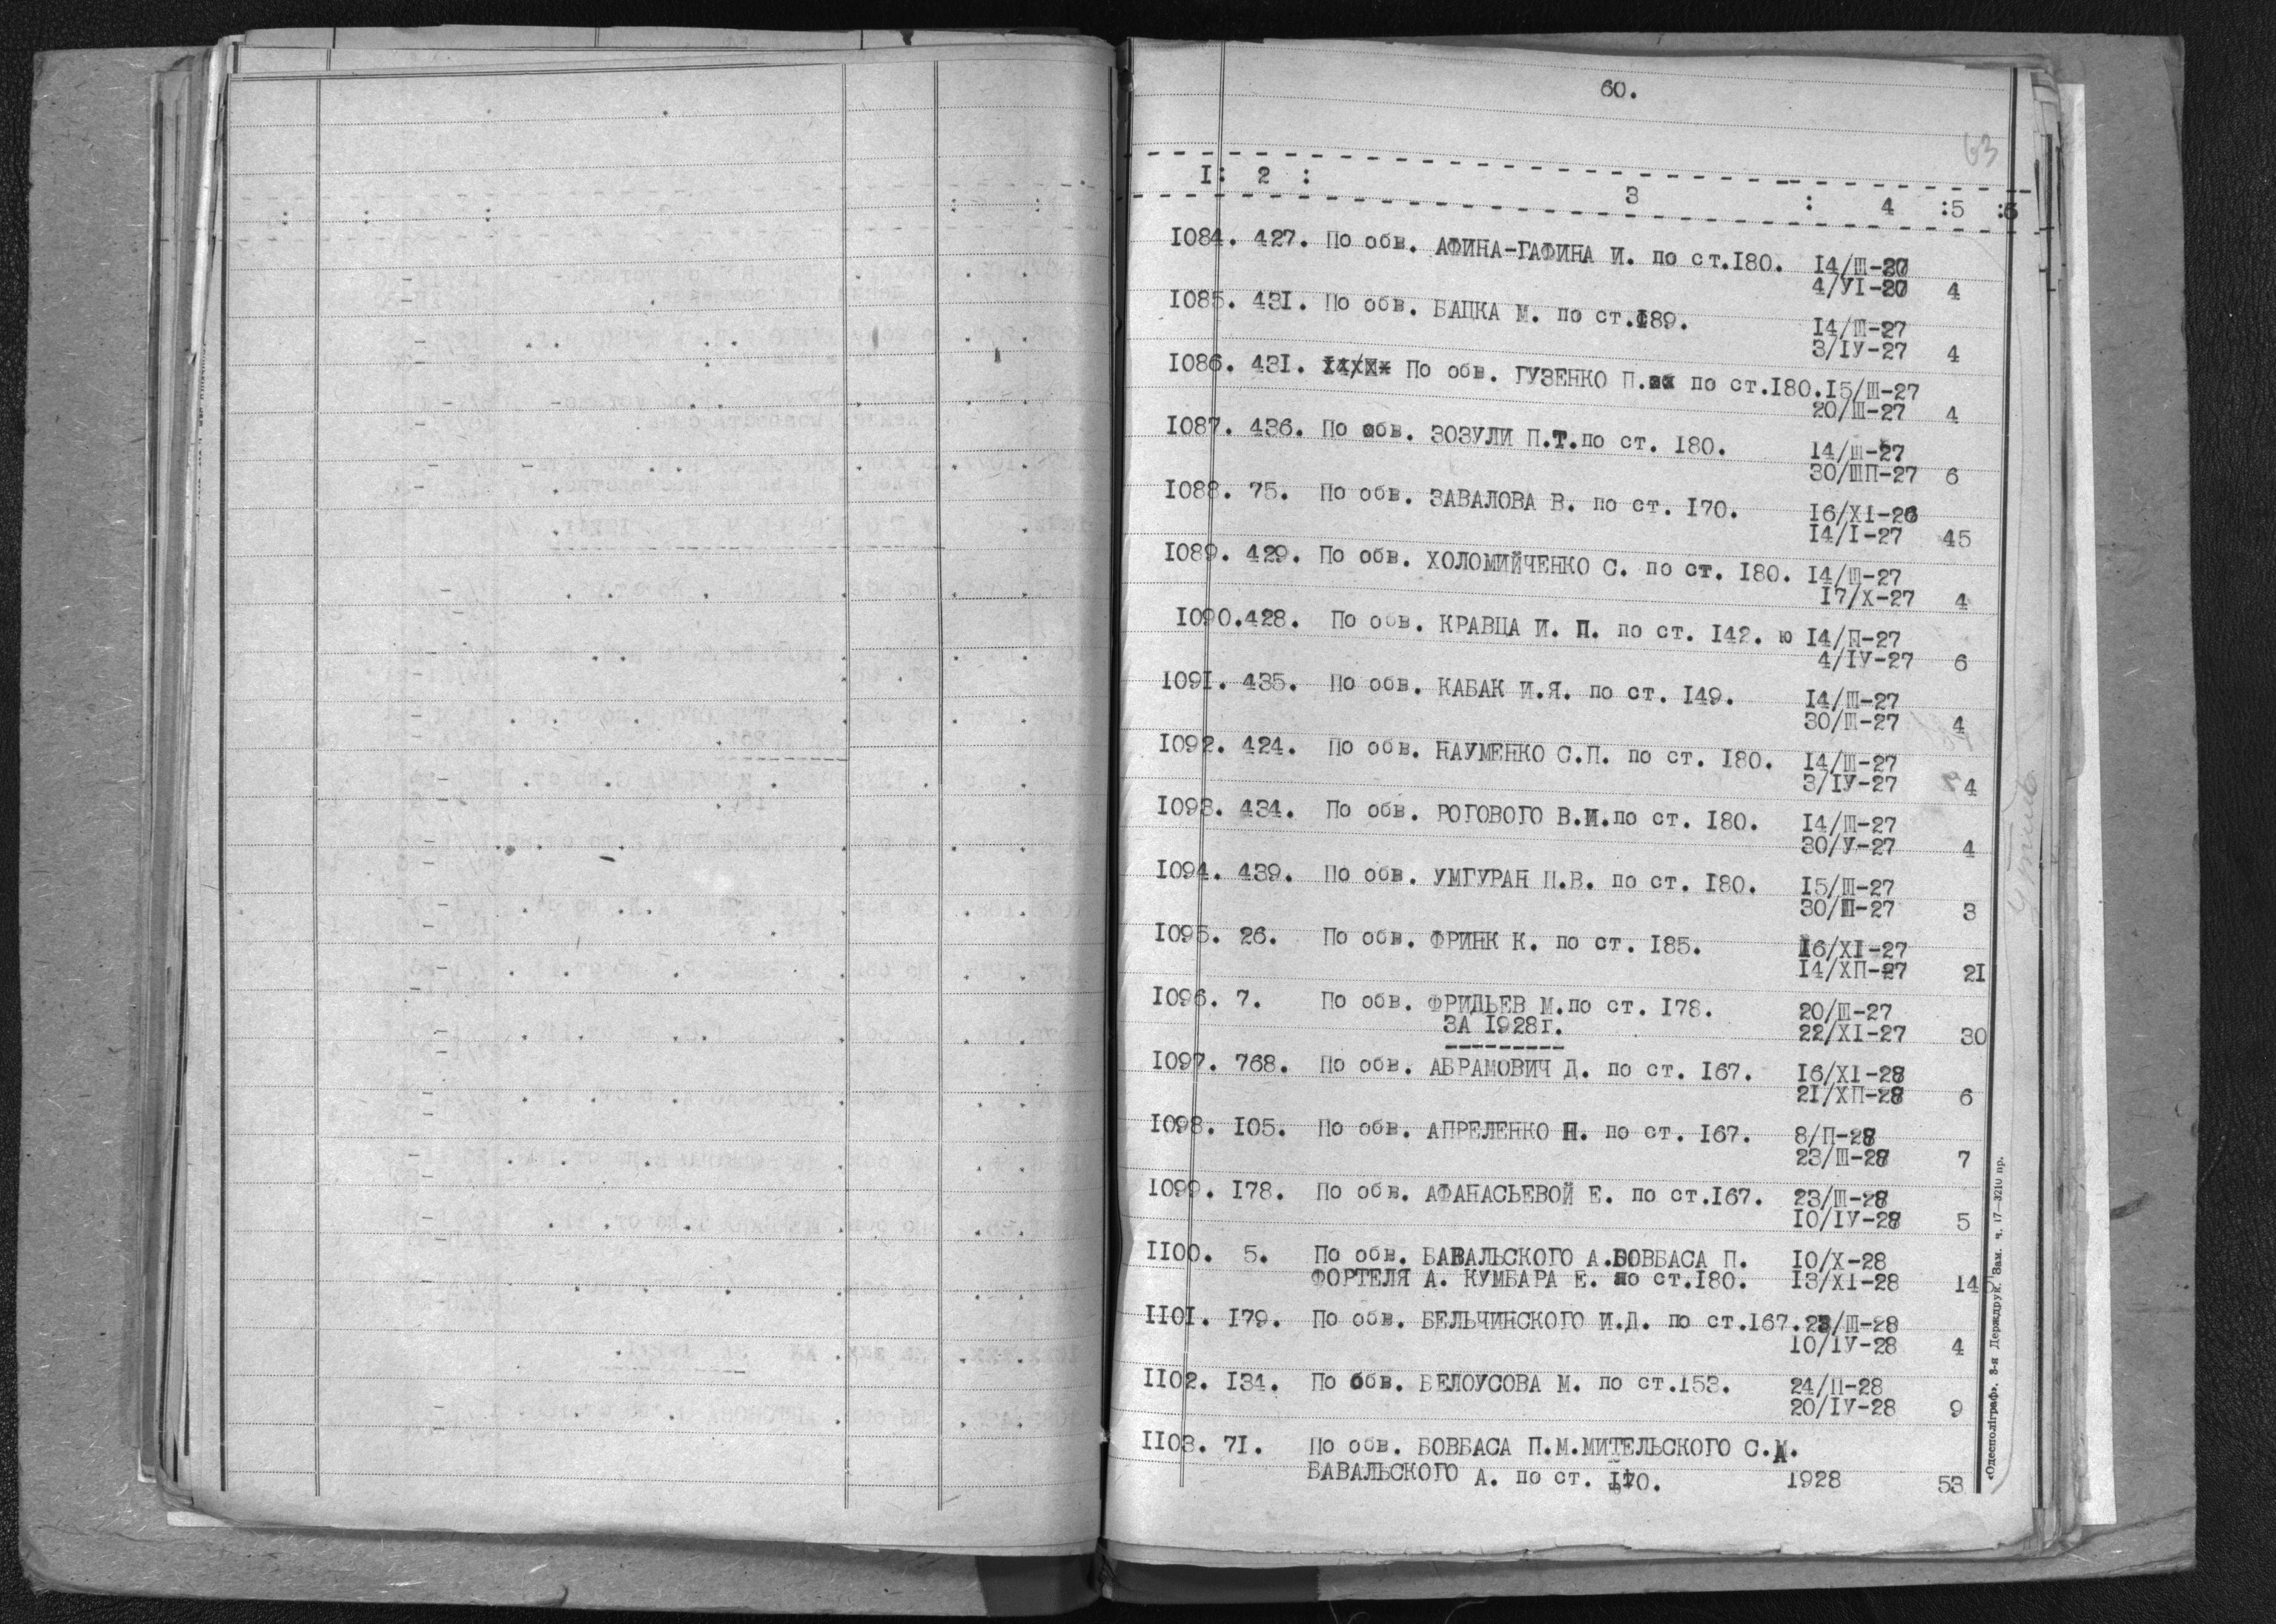 60.
63
I: 2 : 3 : 4 :5 :6
I084. 427. По обв. АФИНА-ГАФИНА И. по ст.I80. I4/Ш-27
4/УI-27 4
I085. 431. По обв. БАЦКА М. по ст.I89. I4/Ш-27
3/IУ-27 4
I086. 431. По обв. ГУЗЕНКО П. по ст.I80.I5/Ш-27
20/Ш-27 4
I087. 436. По обв. ЗОЗУЛИ П.Т.по ст. I80. I4/Ш-27
30/ШП-27 6
I088. 75. По обв. ЗАВАЛОВА В. по ст. I70. I6/XI-26
I4/I-27 45
I089. 429. По обв. ХОЛОМИЙЧЕНКО С. по ст. I80. I4/Ш-27
I7/X-27 4
I090.428. По обв. КРАВЦА И. П. по ст. I42. ю I4/П-27
4/IУ-27 6
I09I. 435. По обв. КАБАК И.Я. по ст. I49. I4/Ш-27
30/Ш-27 4
I092. 424. По обв. НАУМЕНКО С.П. по ст. I80. I4/Ш-27
3/IУ-27 4
I093. 434. По обв. РОГОВОГО В.И.по ст. I80. I4/Ш-27
30/У-27 4
I094. 439. По обв. УМГУРАН П.В. по ст. I80. I5/Ш-27
30/Ш-27 3
I095. 26. По обв. ФРИНК К. по ст. I85. I6/XI-27
I4/ХП-27 2I
I096. 7. По обв. ФРИДЬЕВ М.по ст. I78. 20/Ш-27
ЗА I928г. 22/XI-27 30
I097. 768. По обв. АБРАМОВИЧ Д. по ст. I67. I6/XI-28
2I/ХП-28 6
I098. I05. По обв. АПРЕЛЕНКО Н. по ст. I67. 8/П-28
23/Ш-28 7
I099. I78. По обв. АФАНАСЬЕВОЙ Е. по ст.I67. 23/Ш-28
I0/IУ-28 5
II00. 5. По обв. БАВАЛЬСКОГО А.БОВБАСА П. I0/X-28
ФОРТЕЛЯ А. КУМБАРА Е. по ст.I80. I3/XI-28 I4
II0I. I79. По обв. БЕЛЬЧИНСКОГО И.Д. по ст.I67.23/Ш-28
I0/IУ-28 4
II02. I34. По обв. БЕЛОУСОВА М. по ст.I53. 24/П-28
20/IУ-28 9
II03. 7I. По обв. БОВБАСА П.М.МИТЕЛЬСКОГО С.М.
БАВАЛЬСКОГО А. по ст. I70. I928 53
«Одесполіграф». 3-я Держдрук. Зам. ч. 17—3210 пр.